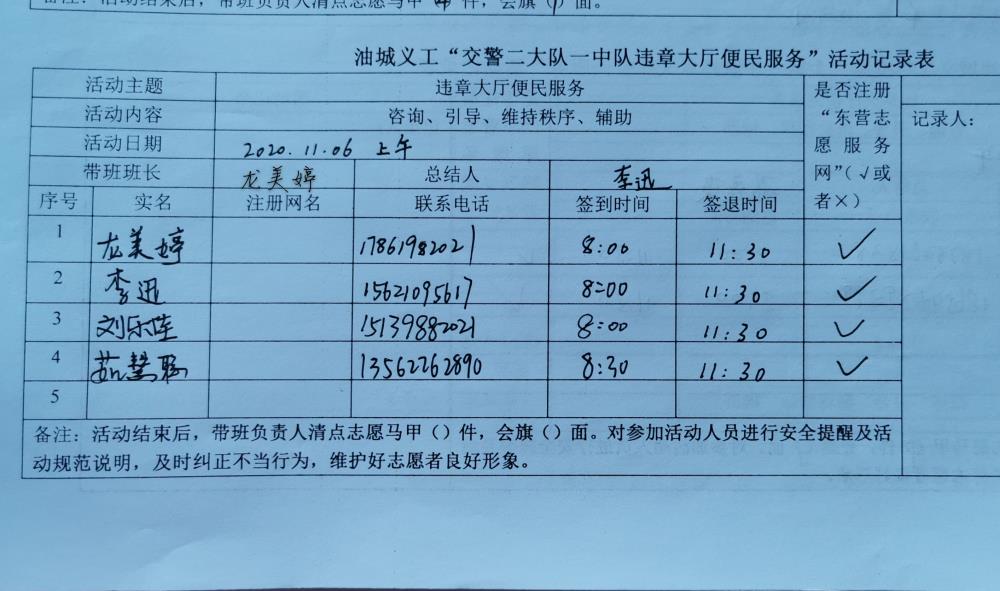 备注：活动结束后，带班负责人清点志愿马甲 件，会旗（）面。
油城义工“交警二大队一中队违章大厅便民服务”活动记录表
活动主题 违章大厅便民服务 是否注册“东营志愿服务网”（√或者×） 记录人：
活动内容 咨询、引导、维持秩序、辅助
活动日期 2020.11.06 上午
带班班长 龙美婷 总结人 李迅
序号 实名 注册网名 联系电话 签到时间 签退时间
1 龙美婷 17861982021 8:00 11:30 ✓
2 李迅 15621095617 8:00 11:30 ✓
3 刘乐陞 15139882021 8:00 11:30 ✓
4 茹慧 13562262890 8:30 11:30 ✓
5
备注：活动结束后，带班负责人清点志愿马甲（）件，会旗（）面。对参加活动人员进行安全提醒及活
动规范说明，及时纠正不当行为，维护好志愿者良好形象。